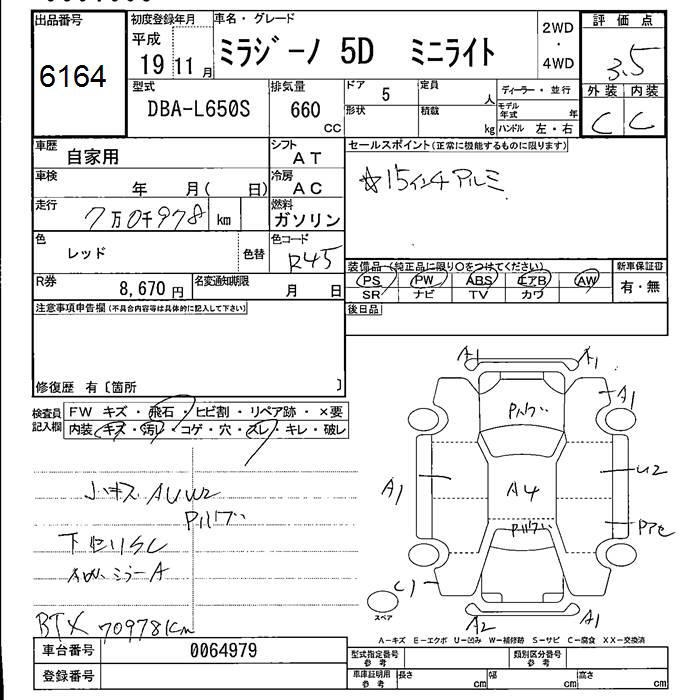 出品番号 6164
初度登録年月 平成 19 11月
車名・グレード ミラジーノ 5D ミニライト
2WD・4WD
評価点 3.5
型式 DBA-L650S
排気量 660 CC
ドア 5
形状
定員 人
積載 kg
ディーラー・並行
モデル年式 年
ハンドル 左・右
外装 内装
C C
車歴 自家用
シフト AT
セールスポイント(正常に機能するものに限ります)
☆15インチアルミ
車検 年 月( 日)
冷房 AC
走行 7万0千978 km
燃料 ガソリン
色 レッド 色替
色コード R45
装備品(純正品に限り〇をつけてください)
新車保証書
PS PW ABS エアB AW
SR ナビ TV カワ
有・無
R券 8,670円
名変通知期限 月 日
後日品
注意事項申告欄(不具合内容等は具体的に記入して下さい)
修復歴 有〔箇所 〕
検査員記入欄
FW キズ・飛石・ヒビ割・リペア跡・×要
内装・キズ・汚レ・コゲ・穴・スレ・キレ・破レ
小キズ AUW2
下
ミラーA
BTX 70978km
A1 A1
A1
A1
A4
U2
C1
A2 A1
スペア
A-キズ E-エクボ U-凹み W-補修跡 S-サビ C-腐食 XX-交換済
車台番号 0064979
型式指定番号 参考
類別区分番号 参考
登録番号
車庫証明用 参考 長さ cm 幅 cm 高さ cm